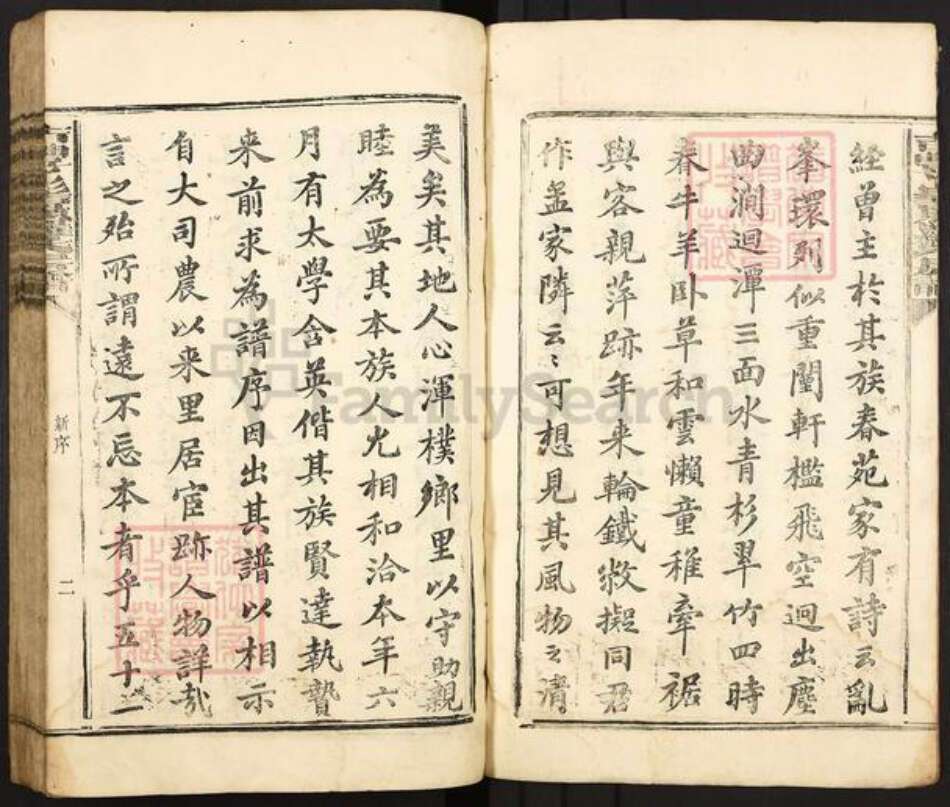 經曾主於其族春苑家有詩云亂
峯環列似重闈軒檻飛空迥出塵
曲澗迴潭三面水青杉翠竹四時
春牛羊臥草和雲懶童稚牽裾
與客親萍跡年來輪鐵救擬同君
作孟家隣云〻可想見其風物之清
美矣其地人心渾樸鄉里以守助親
睦為要其本族人尤相和洽本年六
月有太學含英偕其族賢達執贄
來前求為譜序因出其譜以相示
自大司農以來里居宦跡人物詳哉
言之殆所謂遠不忘本者乎五十二
新序
二
FamilySearch